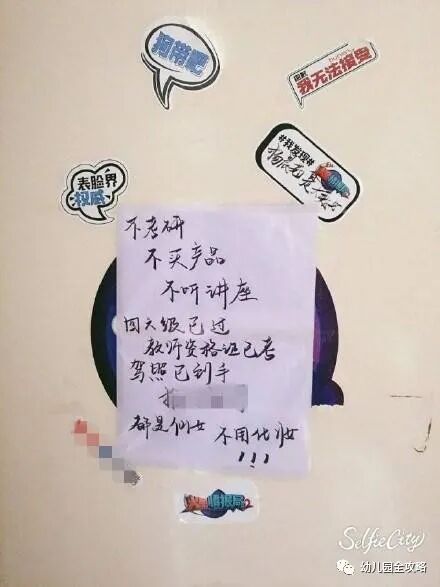 狗带吧
由此
我无法接受
表脸界
权威
#我发现#
不考研
不买产品
不听讲座
四六级已过
教师资格证已考
驾照已到手
都是仙女 不用化妆
!!!
情报局2
SelfieCity
幼儿园全攻略